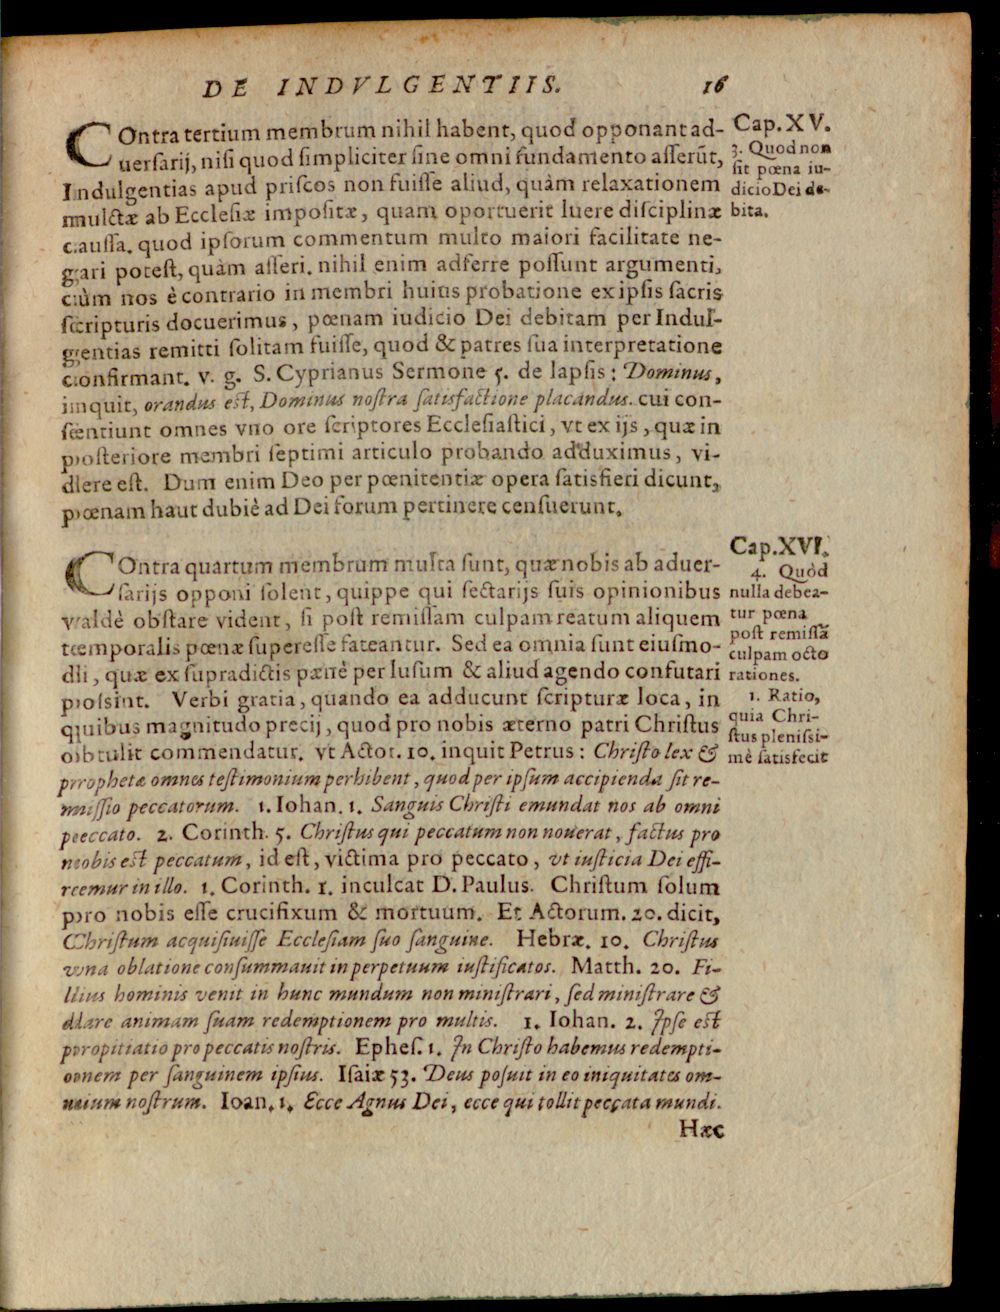 DE INDVLGENTIIS. 16
COntra tertium membrum nihil habent, quod opponant ad-
uersarij, nisi quod simpliciter sine omni fundamento asserūt,
Indulgentias apud priscos non fuisse aliud, quàm relaxationem
mulctæ ab Ecclesiæ impositæ, quam oportuerit luere disciplinæ
caussa. quod ipsorum commentum multo maiori facilitate ne-
gari potest, quàm asseri. nihil enim adferre possunt argumenti,
cùm nos è contrario in membri huius probatione ex ipsis sacris
scripturis docuerimus, pœnam iudicio Dei debitam per Indul-
gentias remitti solitam fuisse, quod & patres sua interpretatione
confirmant. v. g. S. Cyprianus Sermone 5. de lapsis: Dominus,
inquit, orandus est, Dominus nostra satisfactione placandus. cui con-
sentiunt omnes vno ore scriptores Ecclesiastici, vt ex ijs, quæ in
posteriore membri septimi articulo probando adduximus, vi-
dere est. Dum enim Deo per pœnitentiæ opera satisfieri dicunt,
pœnam haut dubiè ad Dei forum pertinere censuerunt.
Cap. XV.
3. Quod non
sit pœna iu-
dicio Dei de-
bita.
COntra quartum membrum multa sunt, quæ nobis ab aduer-
sarijs opponi solent, quippe qui sectarijs suis opinionibus
valdè obstare vident, si post remissam culpam reatum aliquem
temporalis pœnæ superesse fateantur. Sed ea omnia sunt eiusmo-
di, quæ ex supradictis pænè per lusum & aliud agendo confutari
possint. Verbi gratia, quando ea adducunt scripturæ loca, in
quibus magnitudo precij, quod pro nobis æterno patri Christus
obtulit commendatur. vt Actor. 10. inquit Petrus: Christo lex &
prophetæ omnes testimonium perhibent, quod per ipsum accipienda sit re-
missio peccatorum. 1. Iohan. 1. Sanguis Christi emundat nos ab omni
peccato. 2. Corinth. 5. Christus qui peccatum non nouerat, factus pro
nobis est peccatum, id est, victima pro peccato, vt iusticia Dei effi-
remur in illo. 1. Corinth. 1. inculcat D. Paulus. Christum solum
pro nobis esse crucifixum & mortuum. Et Actorum. 20. dicit,
Christum acquisiuisse Ecclesiam suo sanguine. Hebræ. 10. Christus
vna oblatione consummauit in perpetuum iustificatos. Matth. 20. Fi-
lius hominis venit in hunc mundum non ministrari, sed ministrare &
dare animam suam redemptionem pro multis. 1. Iohan. 2. Ipse est
propitiatio pro peccatis nostris. Ephes. 1. In Christo habemus redempti-
onem per sanguinem ipsius. Isaiæ 53. Deus posuit in eo iniquitates om-
nium nostrum. Ioan. 1. Ecce Agnus Dei, ecce qui tollit peccata mundi.
Hæc
Cap. XVI.
4. Quòd
nulla debea-
tur pœna
post remissā
culpam octo
rationes.
1. Ratio,
quia Chri-
stus plenissi-
mè satisfecit